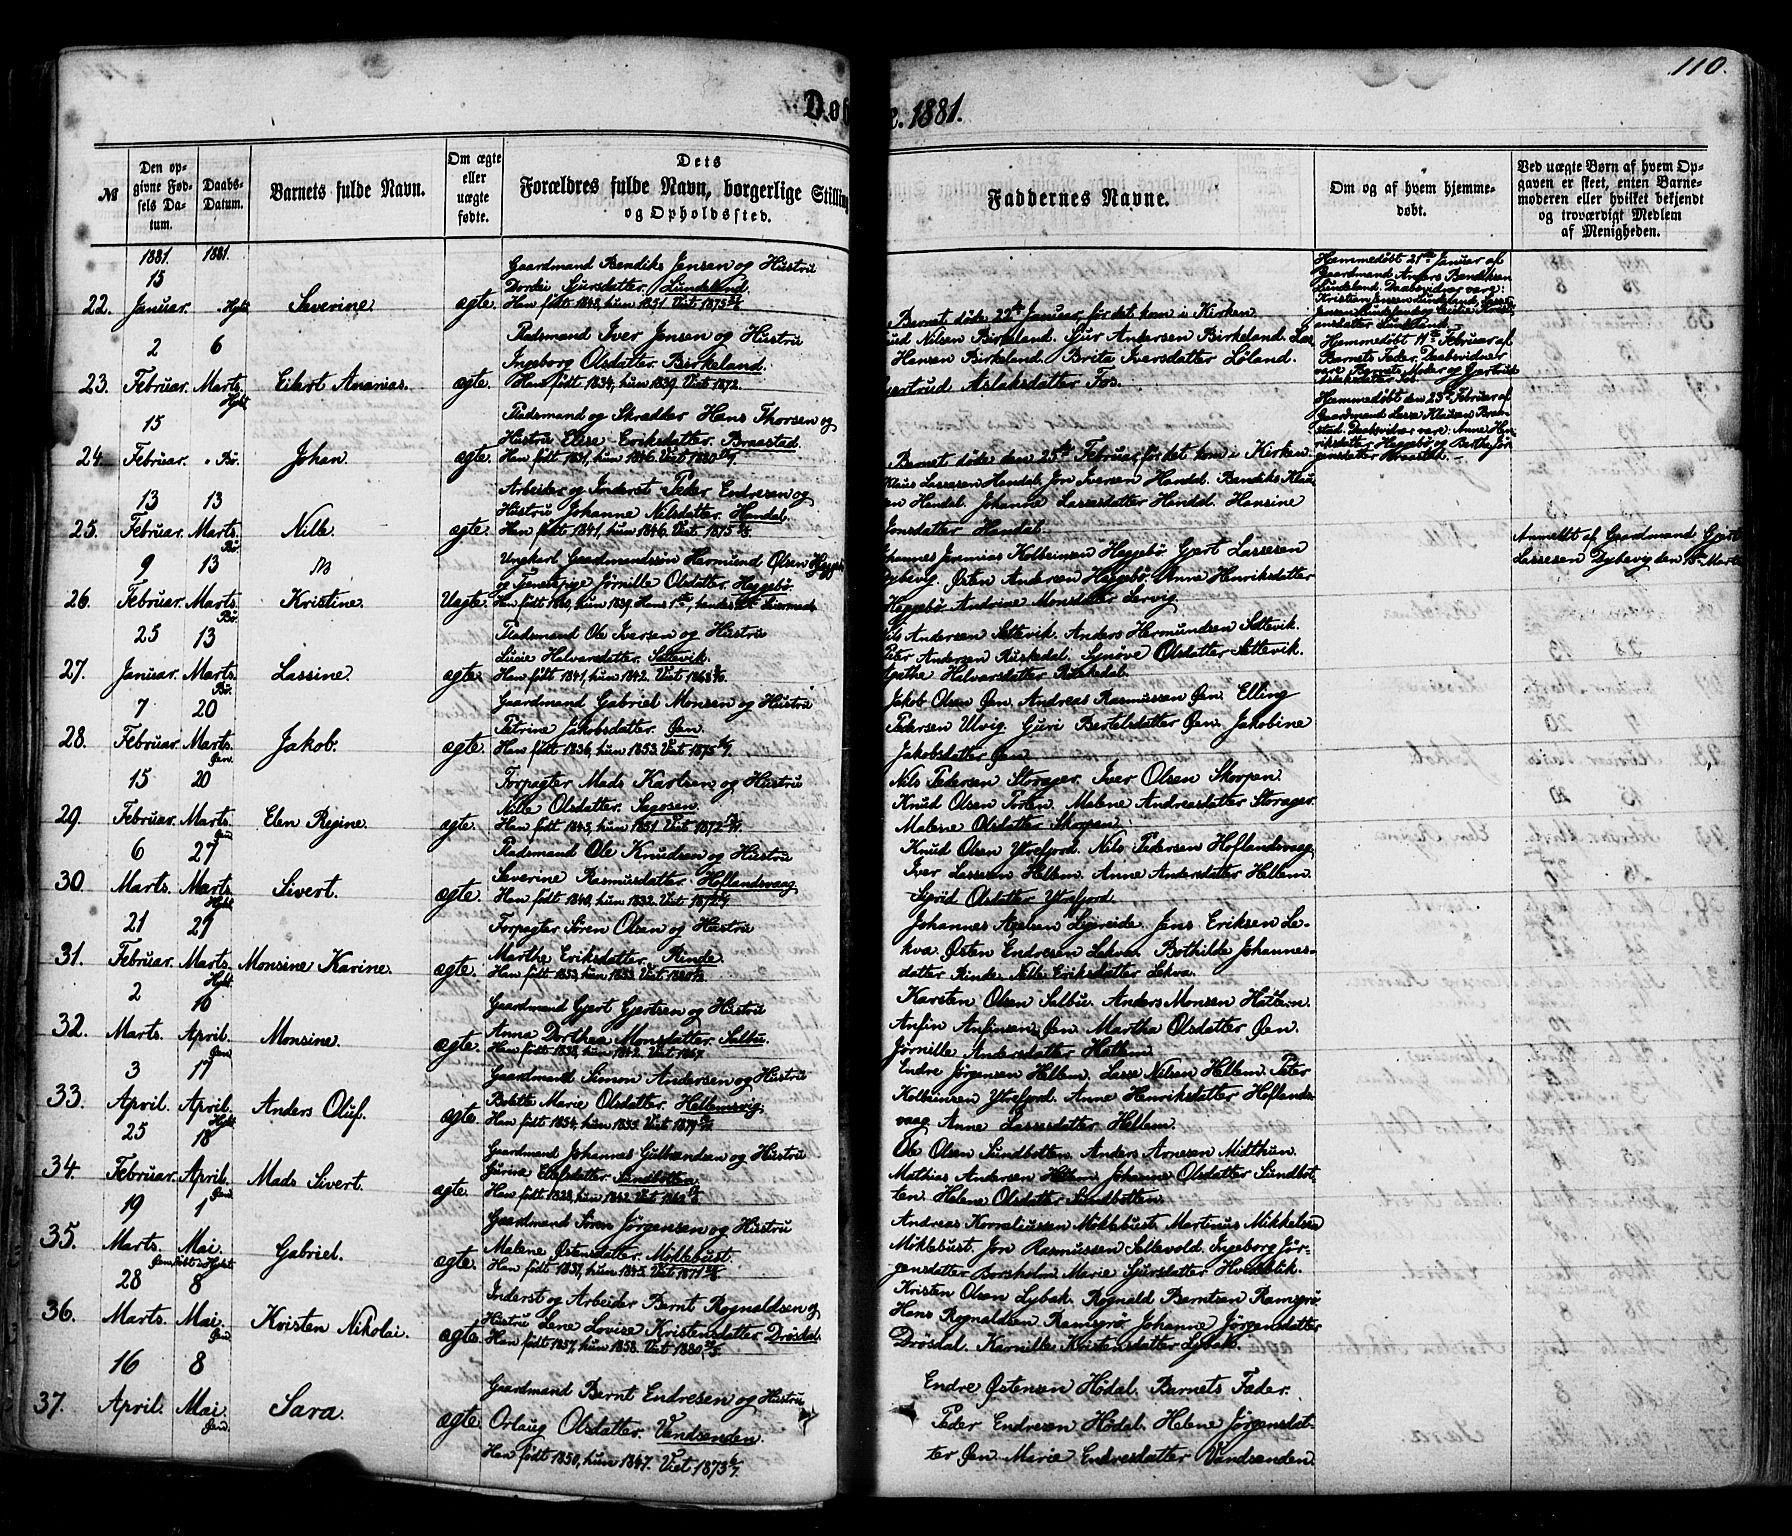 110.
Døb
e. 1881.
№
Den op-
givne Fød-
sels Da-
tum.
Daabs-
Datum.
Barnets fulde Navn.
Om ægte
eller
uægte
fødte.
Dets
Forældres fulde Navn, borgerlige Stilling
og Opholdssted.
Faddernes Navne.
Om og af hvem hjemme-
døbt.
Ved uægte Børn af hvem Op-
gaven er skeet, enten Barne-
moderen eller hvilket bekjendt
og troværdigt Medlem
af Menigheden.
1881. 1881.
15
22. Januar. Severine ægte.
Gaardmand Bendiks Jensen og Hustru
Dordei Sjursdatter. Lundeland.
Han født 1848, hun 1851. Viet 1875
Barnet døde 22de Januar, før det kom i Kirken.
Hjemmedøbt 21de Januar af
Gaardmand Anders Bendiksen
Lundeland. Daabsvidner vare:
Kristian Jensen Lundeland,
2 6
23. Februar. Marts. Eilert Ananias. ægte.
Pladsmand Iver Jensen og Hustru
Ingeborg Olsdatter. Birkeland.
Han født 1834, hun 1839. Viet 1872.
Nilsen Birkeland. Sjur Andersen Birkeland.
Hansen Birkeland. Brita Iversdatter Løland.
Aslaksdatter Fos.
Hjemmedøbt 11te Februar af
Barnets Fader. Daabsvidner
vare Barnets Moder og Gjertrud
Aslaksdatter Fos.
15
24. Februar. Bø. Johan. ægte.
Pladsmand og Skrædder Hans Thorsen og
Hustru Elsse Eriksdatter. Braastad.
Han født 1831, hun 1846. Viet 1880
Barnet døde den 25de Februar, før det kom i Kirken.
Hjemmedøbt den 23de Februar af
Gaardmand Lasse Klausen Braa-
stad. Daabsvidner vare: Anne Hen-
riksdatter Haggebø og Berthe Jør-
gensdatter Braastad.
13 13
25. Februar. Marts. Bø. Nille. ægte.
Arbeider og Inderst Peder Endresen og
Hustru Johanne Nilsdatter. Handal.
Han født 1841, hun 1846. Viet 1875
Klaus Lassesen Handal. Jon Iversen Handal. Bendiks Klau
sen Handal. Johanne Lassesdatter Handal. Hansine
Jonsdatter Handal.
9 13
26. Februar. Marts. Bø. Kristine. Uægte.
Ungkarl Gaardmandssøn Hermund Olsen
og Tjenestepige Jørnille Olsdatter. Haggebø.
Johannes Jeremias Kolbeinsen Haggebø. Gjert Lassesen
Dybevig. Østen Andersen Haggebø. Anne Henriksdatter
Haggebø. Andrine Monsdatter Lervig.
Anmeldt af Gaardmand Gjert
Lassesen Dybevig den 13de Marts
25 13
27. Januar. Marts. Bø. Lassine. ægte.
Pladsmand Ole Iversen og Hustru
Lucie Halvarsdatter. Sættevik.
Han født 1841, hun 1842. Viet 1868
Nils Andersen Sættevik. Anders Hermundsen Sættevik.
Peter Andersen Riskedal. Synøve Olsdatter Sættevik.
Agathe Halvarsdatter Riskedal.
7 20
28. Februar. Marts. Øen. Jakob. ægte.
Gaardmand Gabriel Monsen og Hustru
Petrine Jakobsdatter. Øen.
Han født 1836, hun 1853. Viet 1875
Jakob Olsen Øen. Andreas Rasmussen Øen. Elling
Pedersen Ulvig. Guri Bertelsdatter Øen. Jakobine
Jakobsdatter Øen.
15 20
29. Februar. Marts. Elen Regine. ægte.
Forpagter Mads Karlsen og Hustru
Nille Olsdatter. Sagosen.
Han født 1843, hun 1851. Viet 1872
Nils Pedersen Storager. Iver Olsen Skorpen
Knud Olsen Toren. Malene Andreasdatter Storager.
Malene Olsdatter Skorpen.
6 27
30. Marts. Marts. Sivert. ægte.
Pladsmand Ole Knudsen og Hustru
Severine Rasmusdatter. Hoflandsvaag.
Han født 1840, hun 1832. Viet 1872
Knud Olsen Ytrefjord. Nils Pedersen Hoflandsvaag
Iver Lassesen Hellem. Anne Andersdatter Hellem.
Sigrid Olsdatter Ytrefjord.
21 27
31. Februar. Marts. Monsine Karine. ægte.
Forpagter Sören Olsen og Hustru
Marthe Eriksdatter. Rinde.
Han født 1853, hun 1853. Viet 1880
Johannes Axelsen Ligereide. Jens Eriksen Le-
kva. Østen Endresen Lekva. Bothilde Johannes-
datter Rinde. Nille Eriksdatter Lekva.
2 10
32. Marts. April. Monsine. ægte.
Gaardmand Gjert Gjertsen og Hustru
Anna Dorthea Monsdatter. Salbu.
Han født 1838, hun 1842. Viet 1867.
Karsten Olsen Salbu. Anders Monsen Hatlem.
Anfin Anfinsen Øen. Martha Olsdatter Øen.
Jørnille Andersdatter Hatlem.
3 17
33. April. April. Anders Oluf. ægte.
Gaardmand Simon Andersen og Hustru
Bolette Marie Olsdatter. Hellemsvig.
Han født 1854, hun 1853. Viet 1879
Endre Jørgensen Hellem. Lasse Nilsen Hellem. Peter
Kolbeinsen Ytrefjord. Anne Henriksdatter Hoflands-
vaag. Anne Lassesdatter Hellem.
25 18
34. Februar. April. Mads Sivert. ægte.
Gaardmand Johannes Gulbrandsen og Hustru
Gurina Elefsdatter. Sundbotten.
Han født 1828, hun 1842. Viet 1862
Ole Olsen Sundbotten. Anders Arnesen Midthun.
Mathias Andersen Hellem. Johanne Olsdatter Sundbot-
ten. Helene Olsdatter Sundbotten.
19 1
35. Marts. Mai. Gabriel. ægte.
Gaardmand Sören Jørgensen og Hustru
Malene Østensdatter. Møklebust.
Han født 1851, hun 1845. Viet 1877
Andreas Korneliussen Møklebust. Martinus Mikkelsen
Møklebust. Jon Rasmussen Sættevold. Ingeborg Jør-
gensdatter Borsholm. Marie Sjursdatter
28 8
36. Marts. Mai. Kristen Nikolai. ægte.
Inderst og Arbeider Bernt Rognaldsen og
Hustru Lene Lovise Kristensdatter. Drøsdal.
Han født 1857, hun 1858. Viet 1880
Kristen Olsen Lybak. Rognald Berntsen Ramsgrø
Hans Rognaldsen Ramsgrø. Johanne Jørgensdatter
Drøsdal. Karnille Kristensdatter Lybak.
16 8
37. April. Mai. Sara. ægte.
Gaardmand Bernt Endresen og Hustru
Orlaug Olsdatter. Vandsenden.
Han født 1850, hun 1847. Viet 1873
Endre Østensen Hødal. Barnets Fader.
Peder Endresen Hødal. Helene Jørgensdat-
ter Øen. Marie Endresdatter Vandsenden.